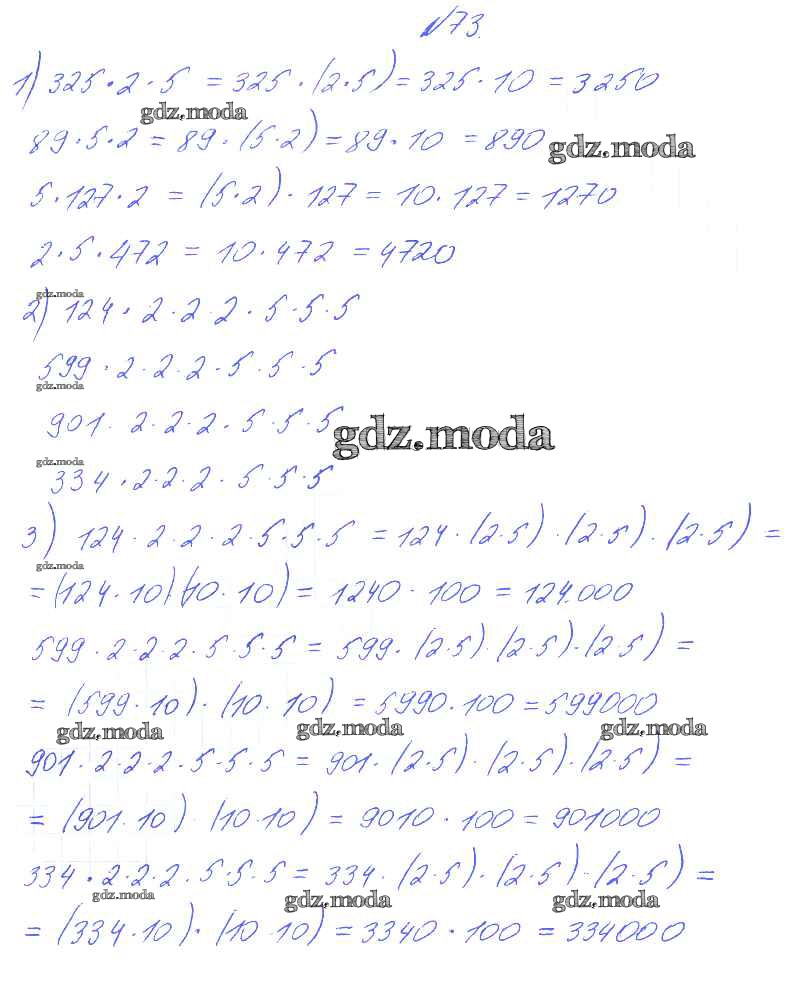 №73.
1) 325 · 2 · 5 = 325 · (2·5) = 325 · 10 = 3250
gdz.moda
89 · 5 · 2 = 89 · (5·2) = 89 · 10 = 890 gdz.moda
5 · 127 · 2 = (5·2) · 127 = 10 · 127 = 1270
2 · 5 · 472 = 10 · 472 = 4720
gdz.moda
2) 124 · 2 · 2 2 · 5 · 5 · 5
599 · 2 · 2 · 2 · 5 · 5 · 5
gdz.moda
901 · 2 · 2 · 2 · 5 · 5 · 5 gdz.moda
gdz.moda
334 · 2 · 2 · 2 · 5 · 5 · 5
3) 124 · 2 · 2 · 2 · 5 · 5 · 5 = 124 · (2·5) · (2·5) · (2·5) =
gdz.moda
= (124 · 10)(10 · 10) = 1240 · 100 = 124.000
599 · 2 · 2 · 2 · 5 · 5 · 5 = 599 · (2·5) · (2·5) · (2·5) =
= (599 · 10) · (10 · 10) = 5990 · 100 = 599000
gdz.moda gdz.moda gdz.moda
901 · 2 · 2 · 2 · 5 · 5 · 5 = 901 · (2·5) · (2·5) · (2·5) =
= (901 · 10) · (10 · 10) = 9010 · 100 = 901000
334 · 2 · 2 · 2 · 5 · 5 · 5 = 334 · (2·5) · (2·5) · (2·5) =
gdz.moda gdz.moda gdz.moda
= (334 · 10) · (10 10) = 3340 · 100 = 334000